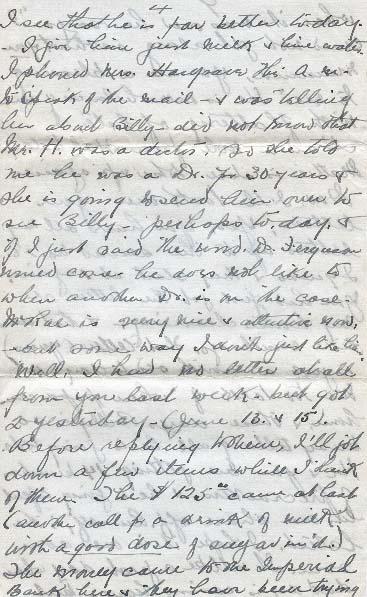 4
I see that he is far better to-day.
I give him just milk & lime water.
I phoned Mrs. Hargrave this A.M.
to speak of the mail - & was telling
her about Billy - did not know that
Mr. H. was a doctor. So she told
me he was a Dr. for 30 years &
she is going to send him over to
see Billy - perhaps to-day. &
if I just said the word. Dr. Ferguson
come. he does not like to
when another Dr. is on the case.
McRae is very nice & attentive now,
- but some way I don't just like him.
Well, I had no letter at all
from you last week - but got
2 yesterday - (June 13. & 15).
Before replying to them, I'll jot
down a few items while I think
of them. The $125.00 came at last
(another call for a drink of milk
with a good dose of sugar in it.)
The money came to the Imperial
Bank here & they have been trying